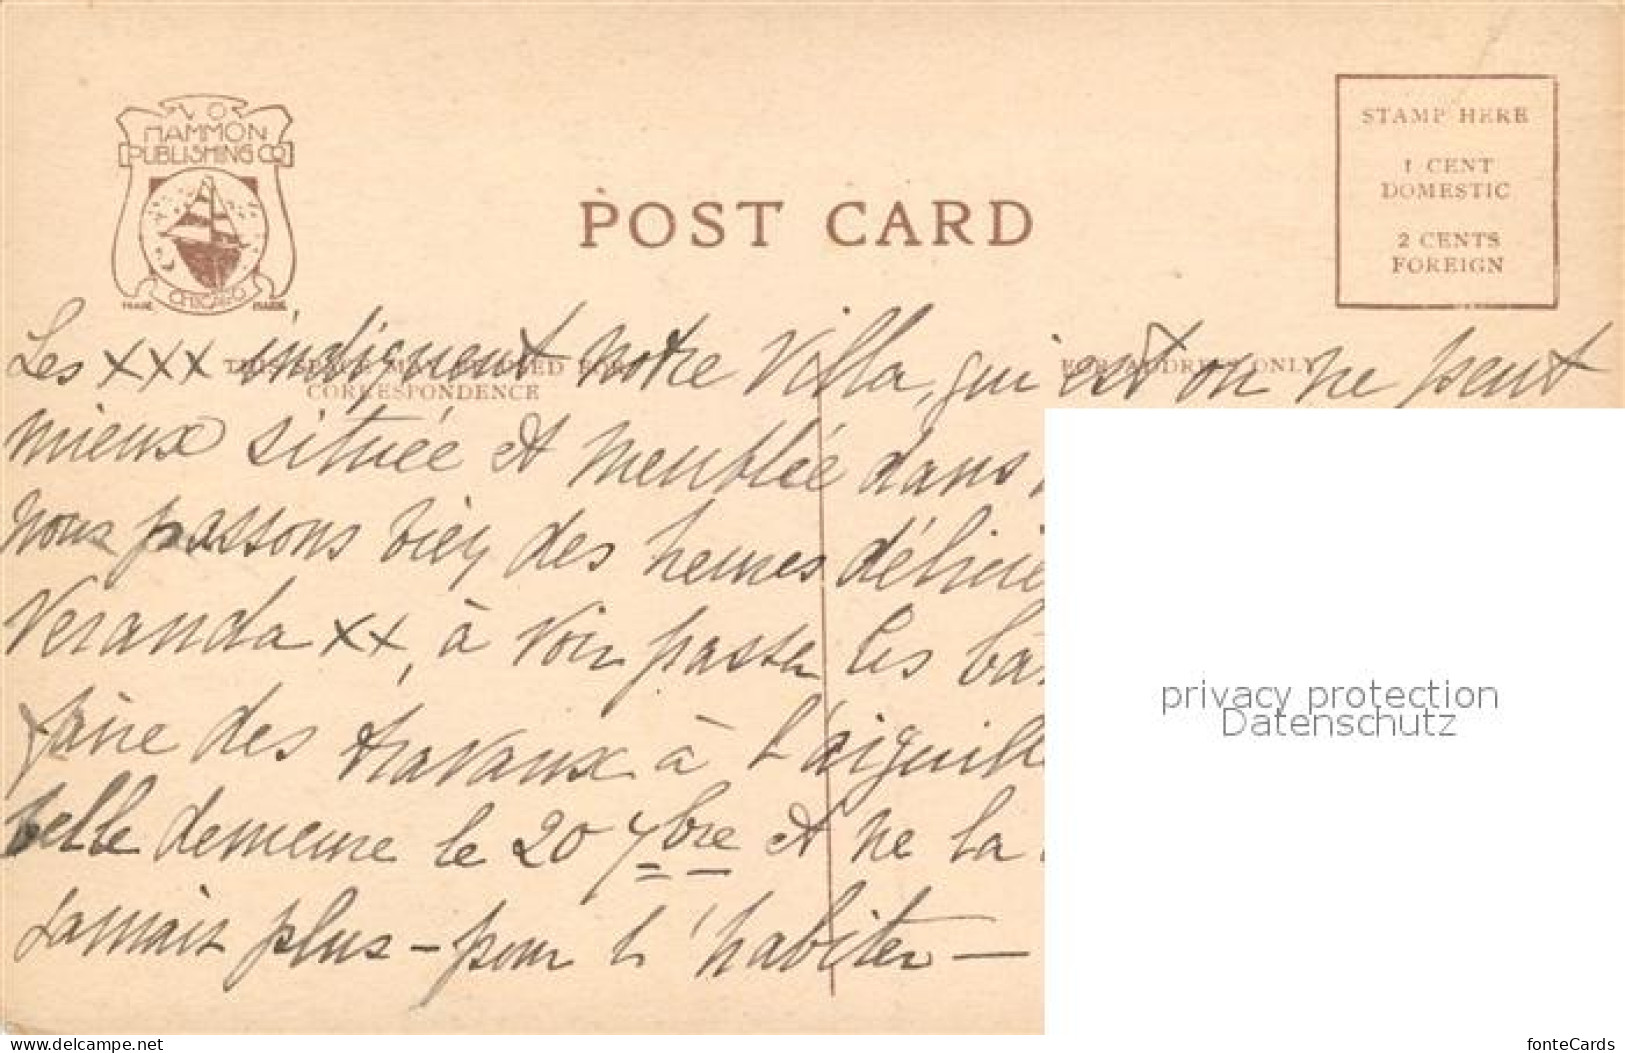 V O
HAMMON
PUBLISHING CO
CHICAGO
TRADE MARK
POST CARD
STAMP HERE
1 CENT
DOMESTIC
2 CENTS
FOREIGN
THIS SPACE MAY BE USED FOR
CORRESPONDENCE
FOR ADDRESS ONLY
Les xxx indiquent notre Villa, qui est on ne peut
mieux située et meublée dans
nous passons bien des heures délicie
Veranda xx, à voir passer les ba
faire des travaux à l'aiguill
belle demeure le 20 7bre et ne la
jamais plus – pour l'habiter –
privacy protection
Datenschutz
www.delcampe.net
fonteCards